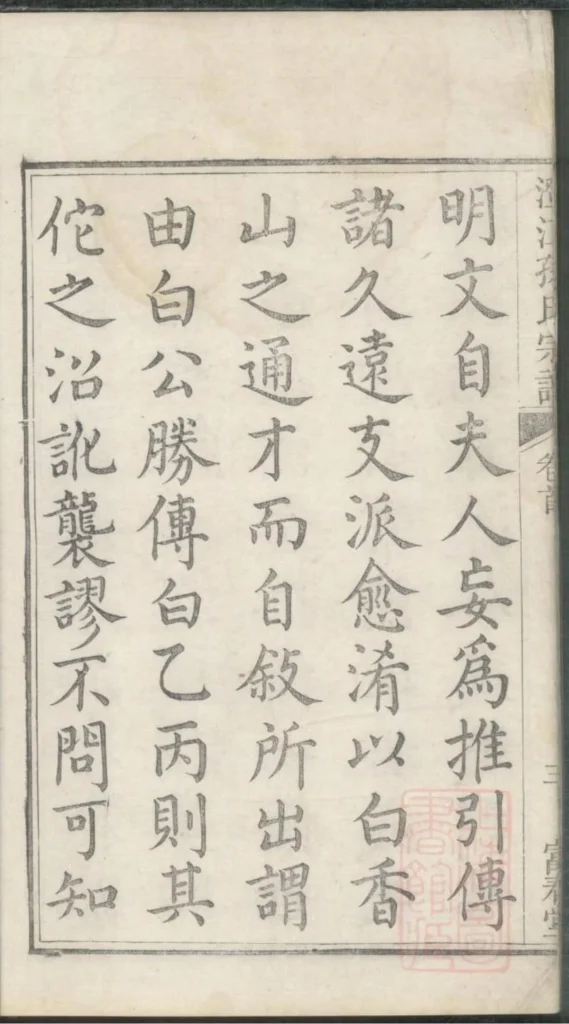 孫氏宗譜 卷首 三
明文自夫人妄為推引傳
諸久遠支派愈淆以白香
山之通才而自敘所出謂
由白公勝傳白乙丙則其
佗之沿訛襲謬不問可知